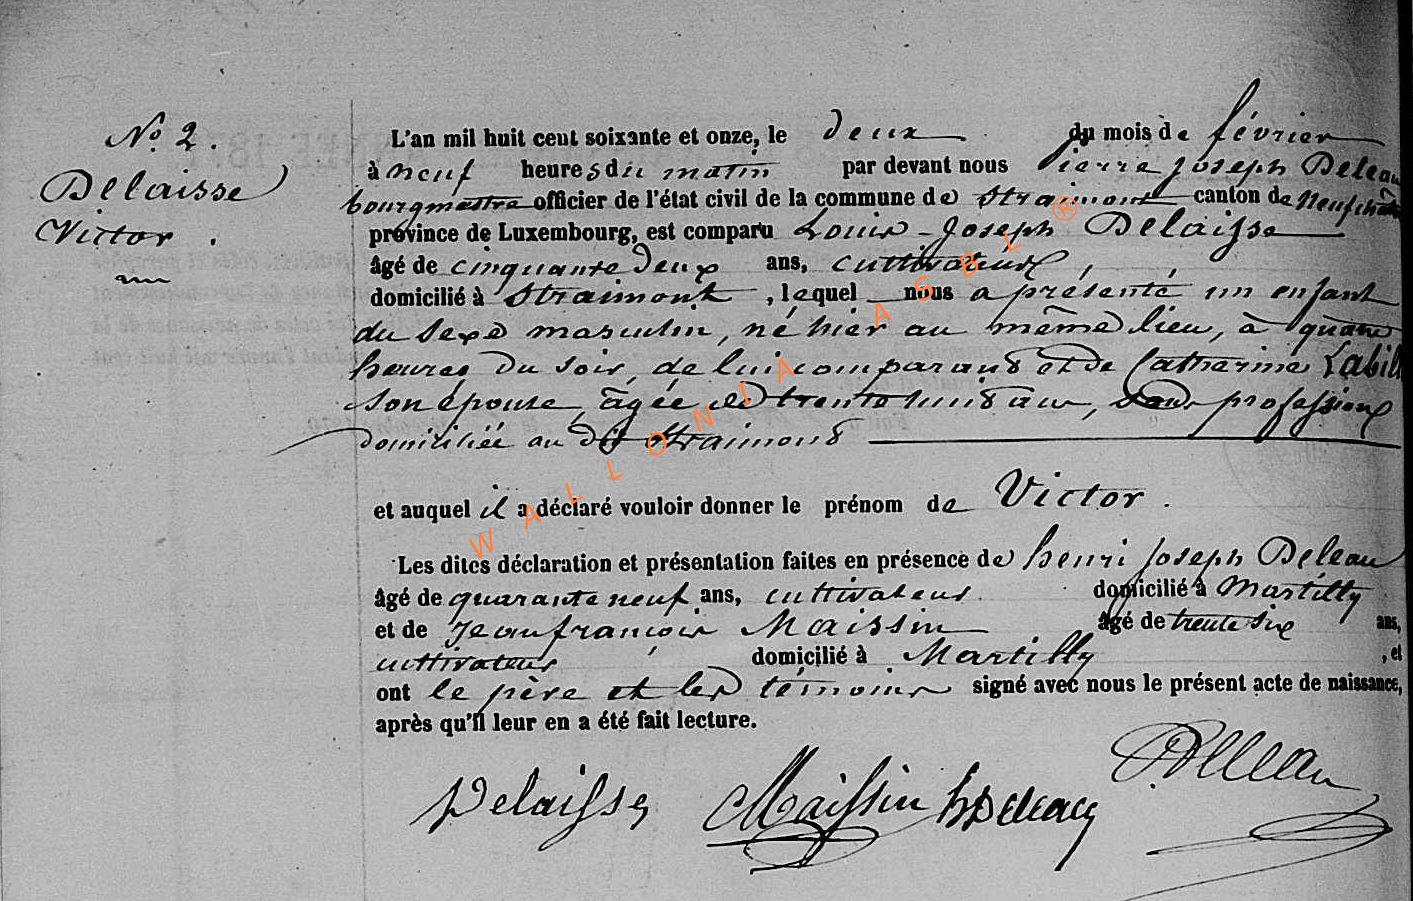 N.o 2.
Delaisse
Victor.
L'an mil huit cent soixante et onze, le deux du mois de février
à neuf heures du matin par devant nous Pierre Joseph Deleau
bourgmestre officier de l'état civil de la commune de Straimont canton de Neufchâteau
province de Luxembourg, est comparu Louis-Joseph Delaisse
âgé de cinquante deux ans, cultivateur,
domicilié à Straimont, lequel nous a présenté un enfant
du sexe masculin, né hier au même lieu, à quatre
heures du soir, de lui comparant et de Catherine Labill
son épouse, âgée de trente huit ans, sans profession
domiciliée au dit Straimont
et auquel il a déclaré vouloir donner le prénom de Victor.
Les dites déclaration et présentation faites en présence de henri Joseph Deleau
âgé de quarante neuf ans, cultivateur domicilié à Martilly
et de Jean françois Maissin âgé de trente six ans,
cultivateur domicilié à Martilly, et
ont le père et les témoins signé avec nous le présent acte de naissance,
après qu'il leur en a été fait lecture.
Delaisse Maissin hjDeleau PJDeleau
WALLONIA ASBL ®